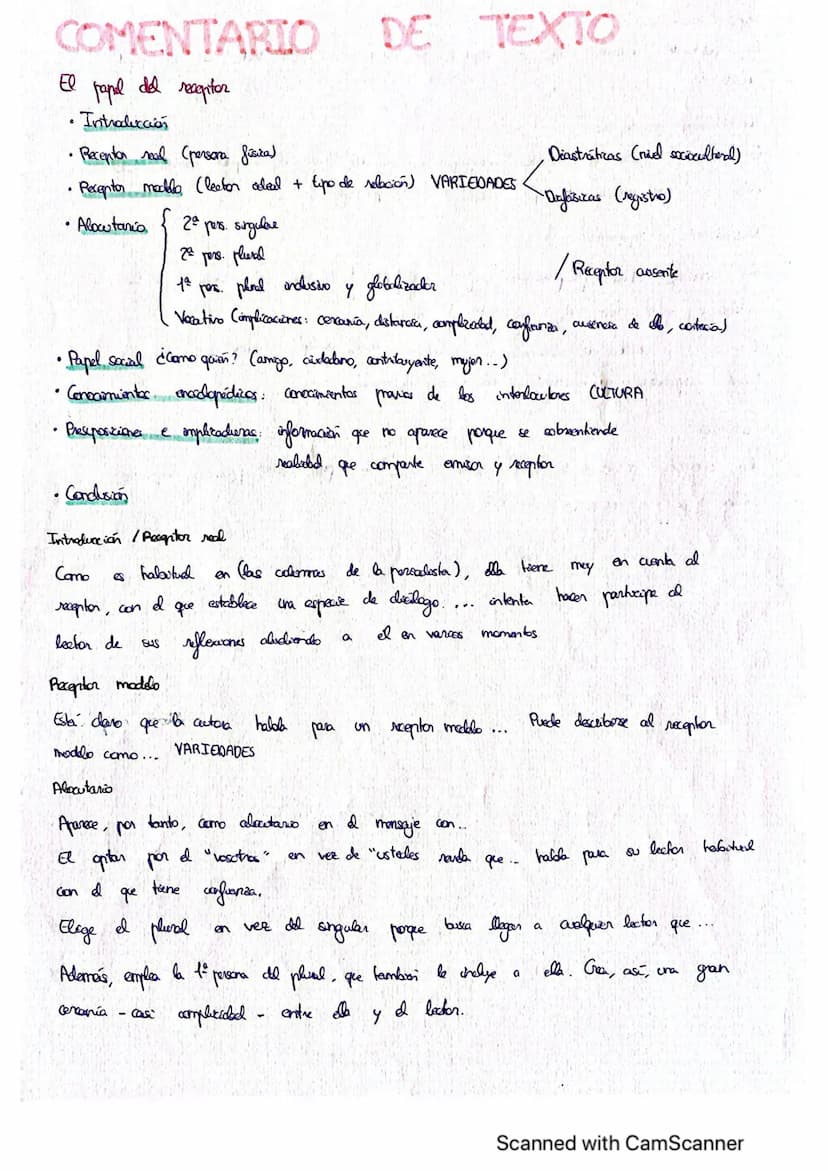 COMENTARIO DE TEXTO
El papel del receptor
• Introducción
• Receptor real (persona física)
• Receptor modelo (lector ideal + tipo de relación) VARIEDADES
Diastráticas (nivel sociocultural)
Diafásicas (registro)
• Alocutario
2ª pers. singular
2ª pers. plural
1ª pers. plural inclusivo y globalizador
/ Receptor ausente
Vocativo (implicaciones: cercanía, distancia, complicidad, confianza, ausencia de ella, cortesía)
• Papel social ¿Como quién? (amigo, ciudadano, contribuyente, mujer...)
• Conocimientos enciclopédicos: conocimientos previos de los interlocutores CULTURA
• Presuposiciones e implicaturas: información que no aparece porque se sobreentiende
realidad que comparte emisor y receptor
• Conclusión
Introducción / Receptor real
Como es habitual en (las columnas de la periodista), ella tiene muy en cuenta al
receptor, con el que establece una especie de diálogo. ... intenta hacer partícipe al
lector de sus reflexiones aludiendo a el en varios momentos
Receptor modelo
Está claro que la autora habla para un receptor modelo ... Puede describirse al receptor
modelo como... VARIEDADES
Alocutario
Aparece, por tanto, como alocutario en el mensaje con...
El optar por el "vosotros" en vez de "ustedes revela que ... habla para su lector habitual
con el que tiene confianza.
Elige el plural en vez del singular porque busca llegar a cualquier lector que ...
Además, emplea la 1ª persona del plural, que también le incluye a ella. Crea, así, una gran
cercanía - casi complicidad - entre ella y el lector.
Scanned with CamScanner